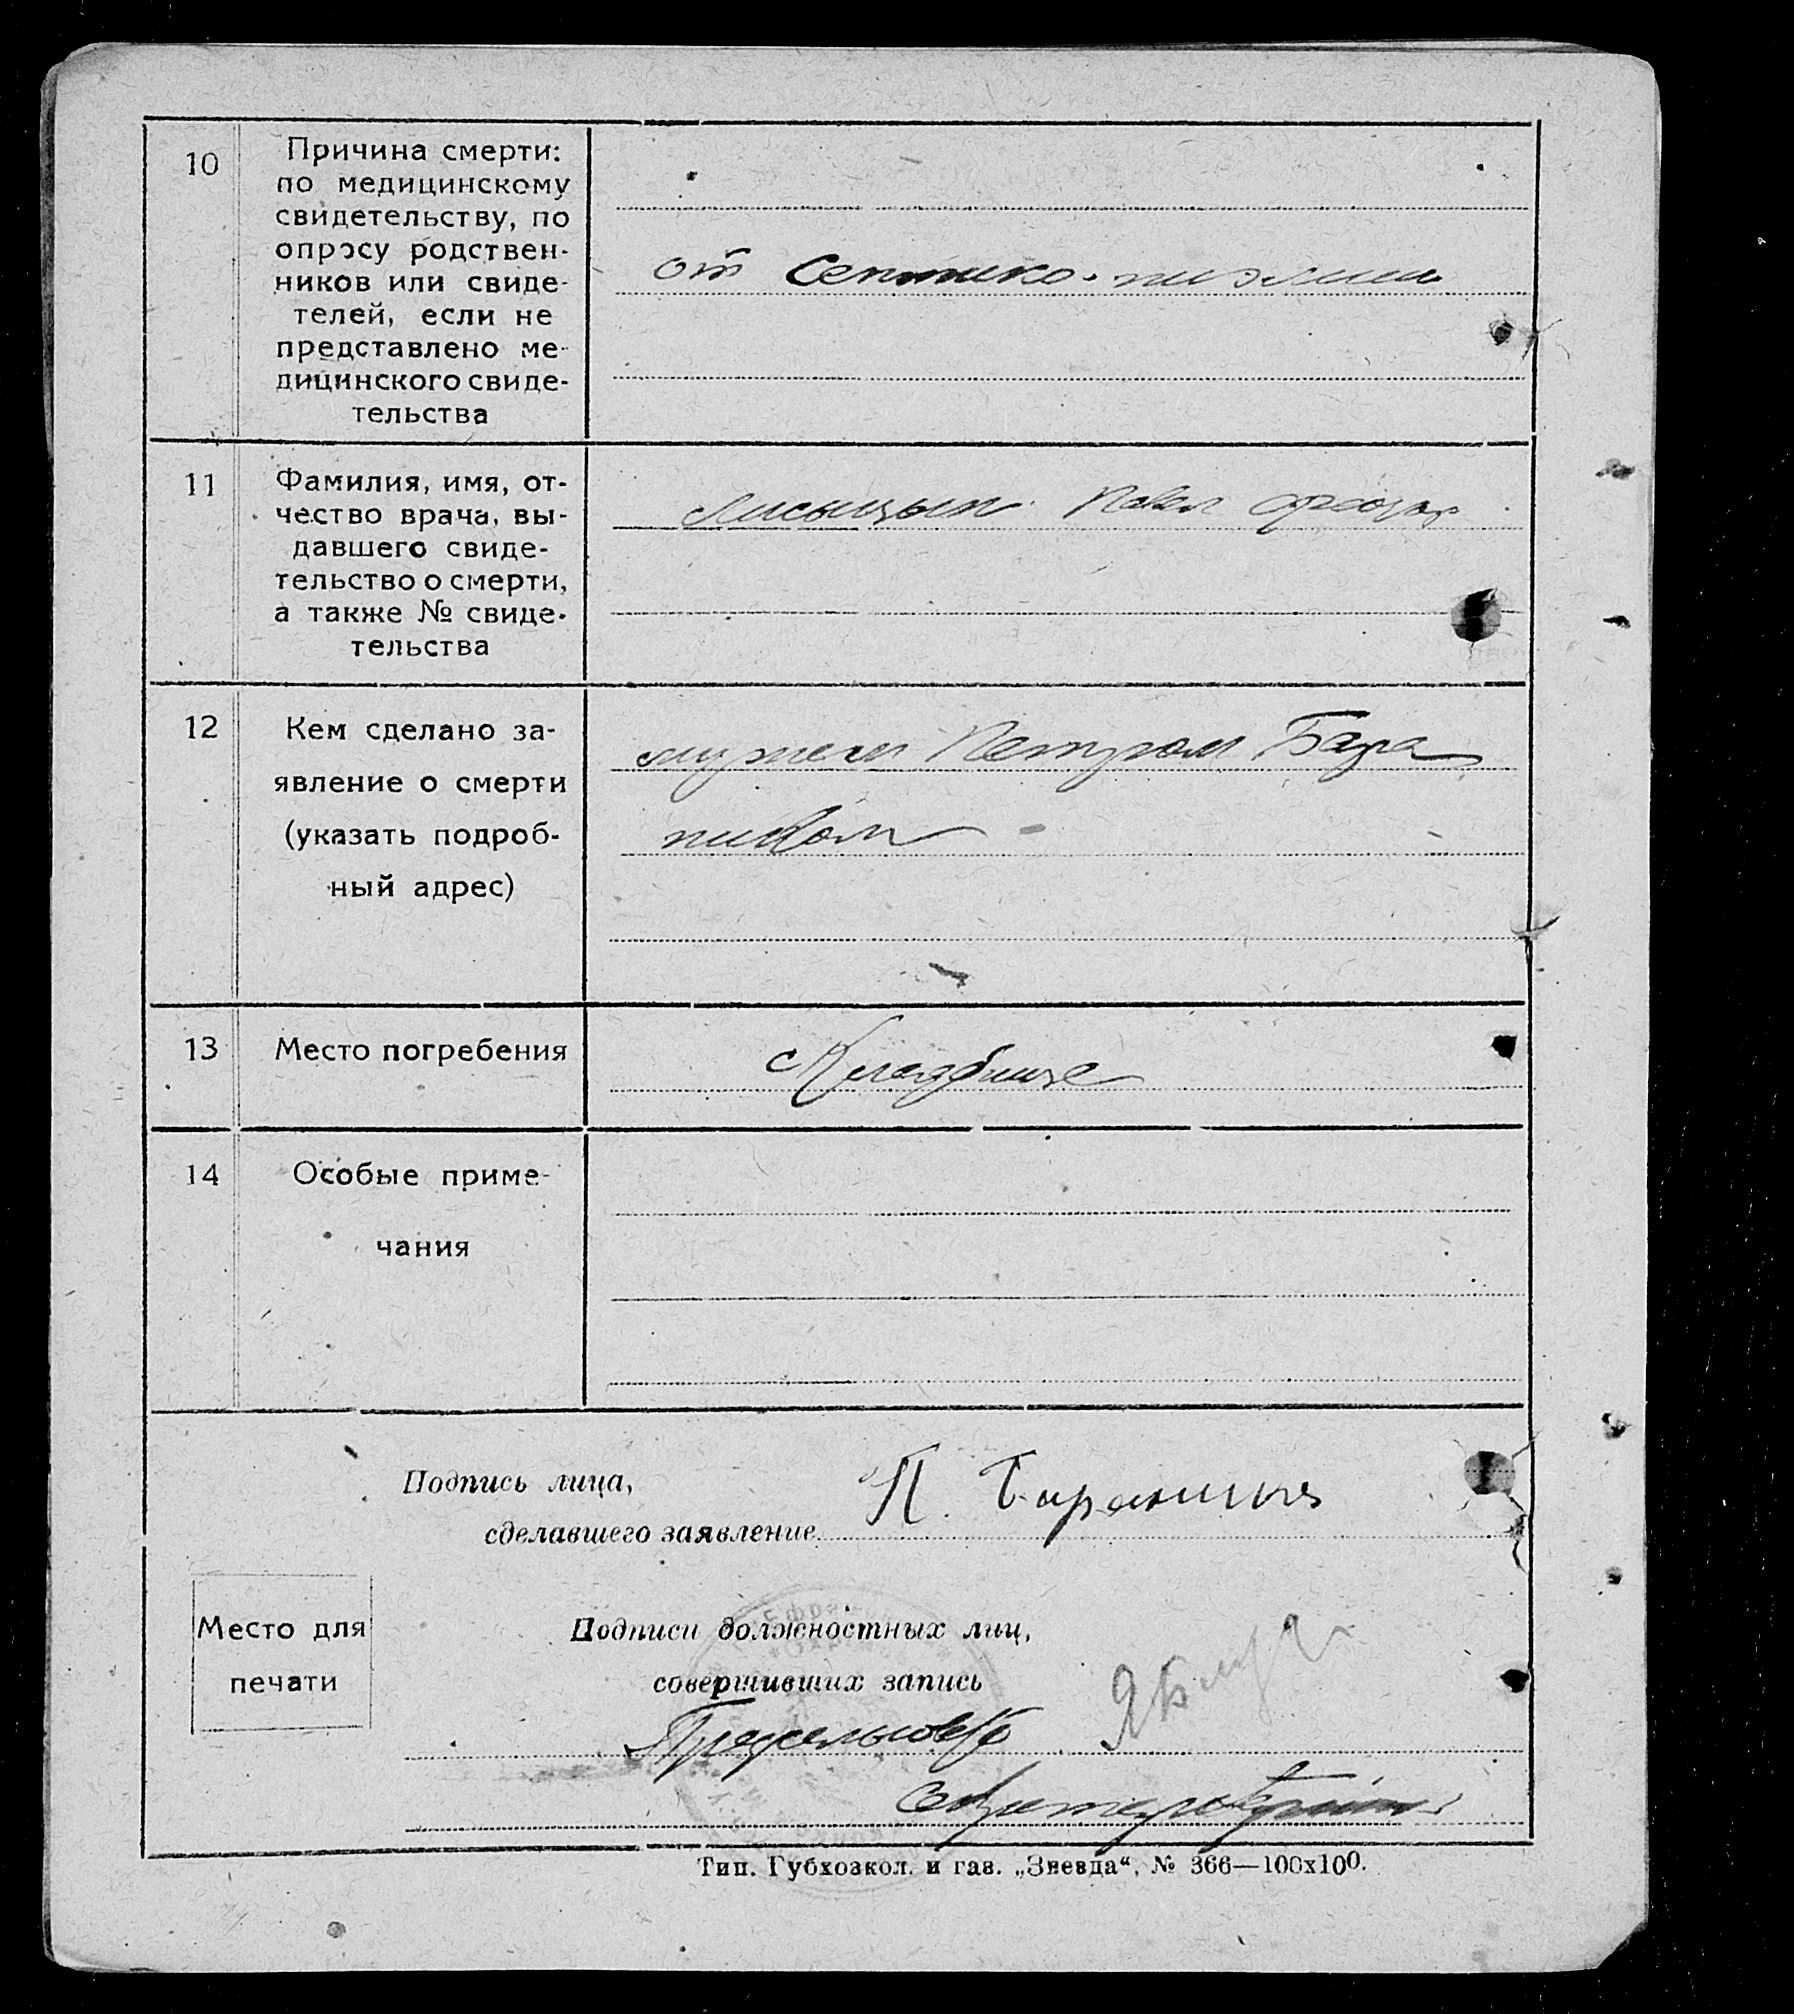 10
Причина смерти:
по медицинскому
свидетельству, по
опросу родствен-
ников или свиде-
телей, если не
представлено ме-
дицинского свиде-
тельства
от септико-пиэмии
11
Фамилия, имя, от-
чество врача, вы-
давшего свиде-
тельство о смерти,
а также № свиде-
тельства
Лисицын Павел
12
Кем сделано за-
явление о смерти
(указать подроб-
ный адрес)
мужем Петром Бара
ником
13
Место погребения
Кладбище
14
Особые приме-
чания
Подпись лица,
сделавшего заявление
П. Бараник
Место для
печати
Подписи должностных лиц,
совершивших запись
Тип. Губхозкол. и газ. „Звезда“, № 366—100х100.